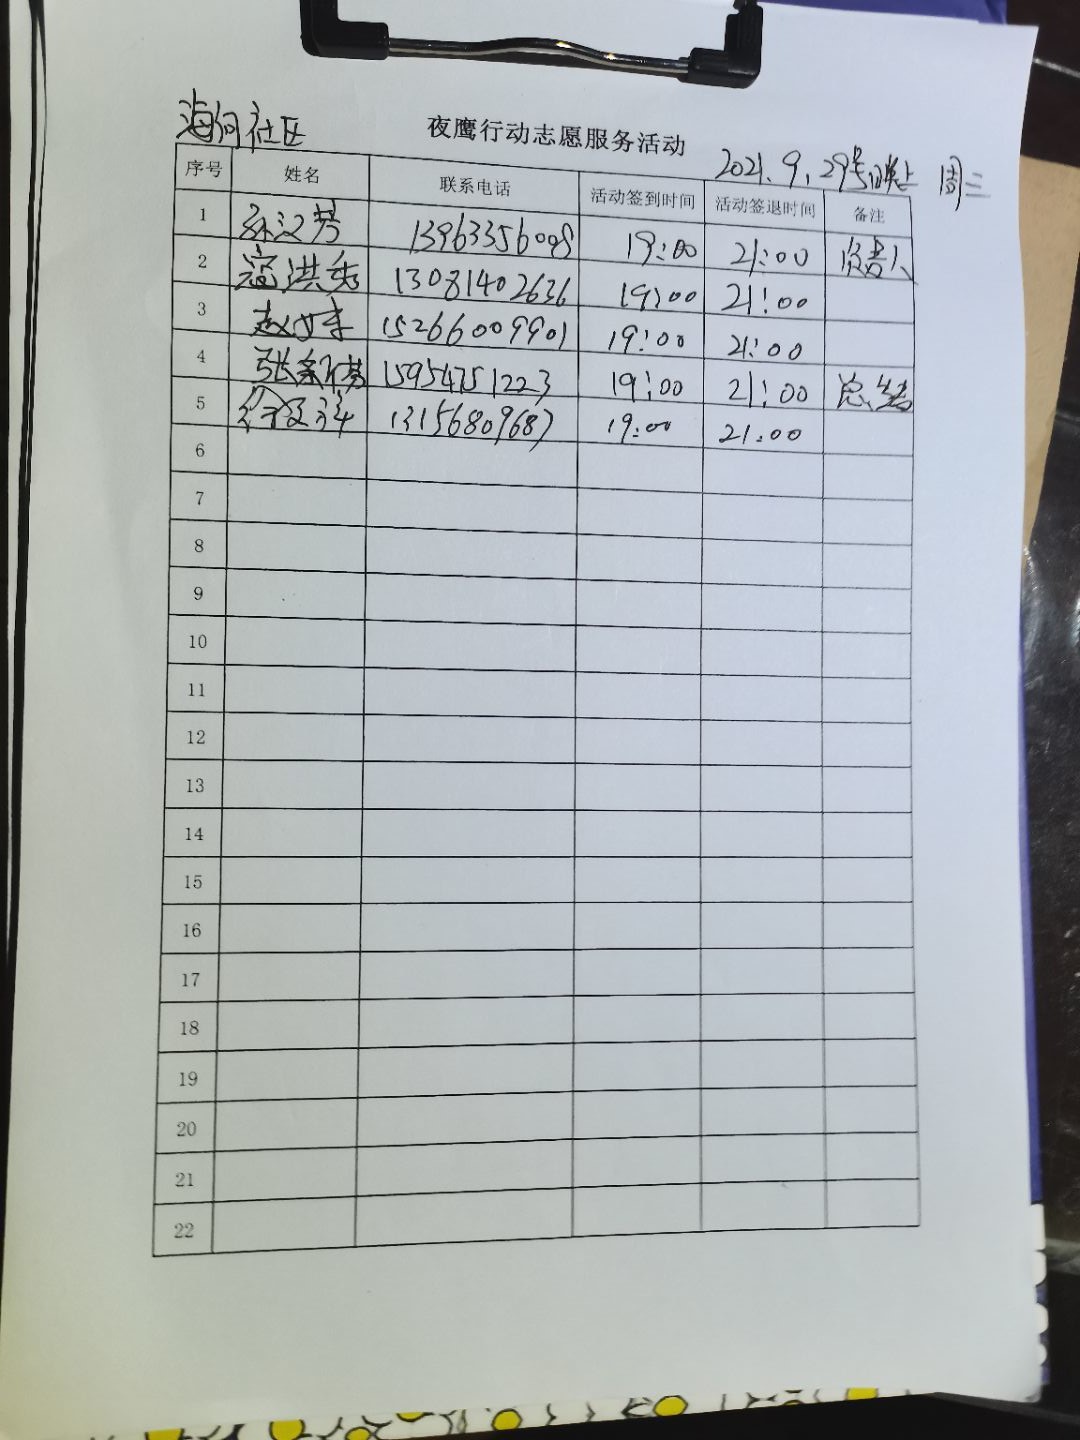 海河社区
夜鹰行动志愿服务活动
2021.9.29号晚上 周三
序号 姓名 联系电话 活动签到时间 活动签退时间 备注
1 孙汉芳 13963356098 19:00 21:00 负责人
2 寇洪秀 13081402636 19:00 21:00
3 15266009901 19:00 21:00
4 张新芳 15954751223 19:00 21:00 总结
5 13156809687 19:00 21:00
6
7
8
9
10
11
12
13
14
15
16
17
18
19
20
21
22